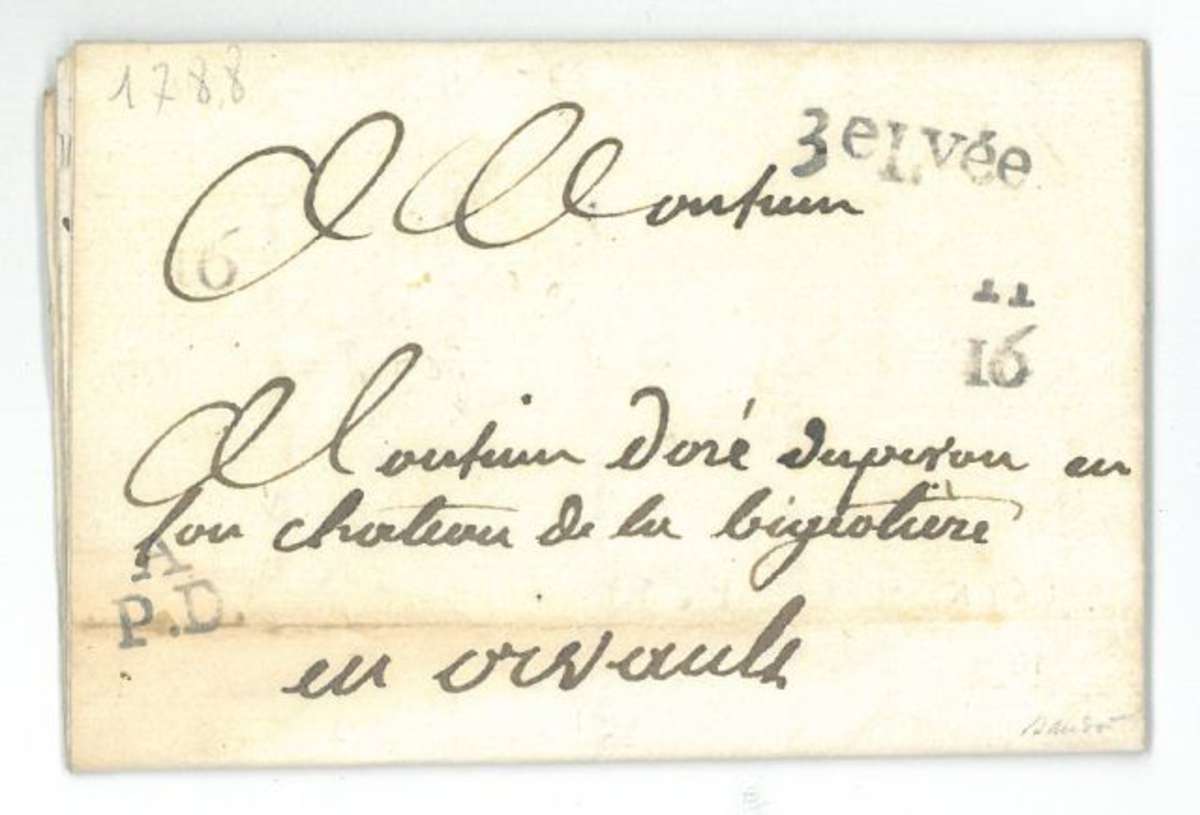 1788
3 eLvée
A Monsieur
6
11
16
Monsieur Doré Duperon en
son chateau de la bigeotiere
A
P.D.
en orvault
Baudot